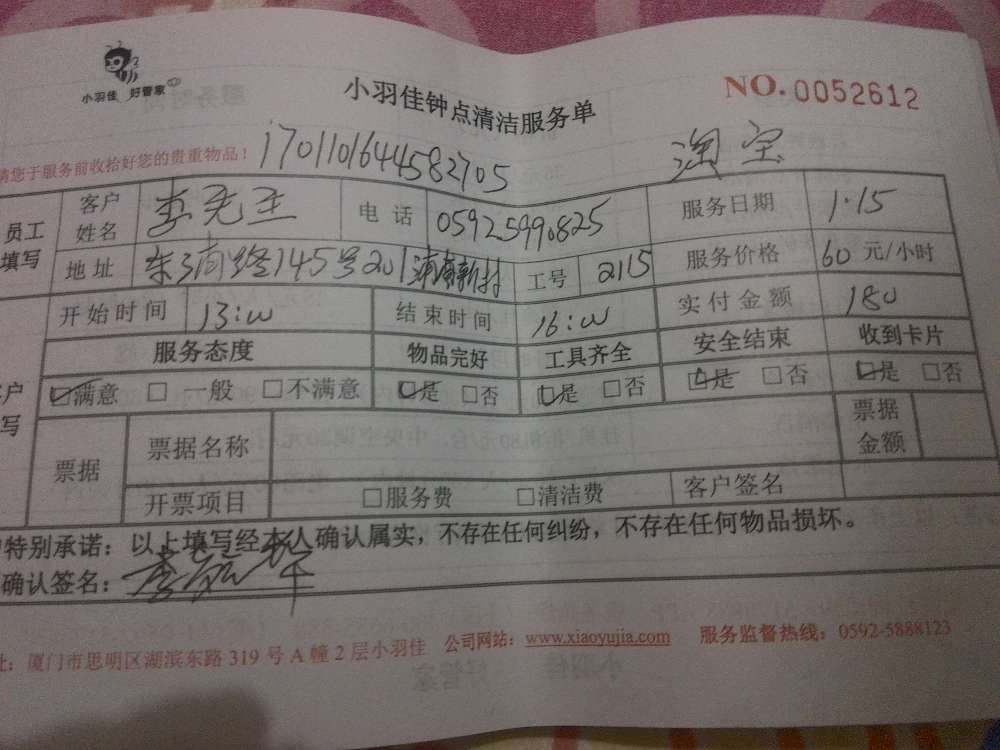 小羽佳 好管家
小羽佳钟点清洁服务单
NO. 0052612
请您于服务前收拾好您的贵重物品！
1701101644582705
淘宝
员工填写
客户姓名 李先生 电话 05925990825 服务日期 1.15
地址 145号201 工号 2115 服务价格 60 元/小时
开始时间 13:00 结束时间 16:00 实付金额 180
服务态度 物品完好 工具齐全 安全结束 收到卡片
客户填写
☑满意 □ 一般 □不满意 ☑是 □否 ☑是 □否 ☑是 □否 ☑是 □否
票据 票据名称 票据金额
开票项目 □服务费 □清洁费 客户签名
特别承诺：以上填写经本人确认属实，不存在任何纠纷，不存在任何物品损坏。
确认签名：
址：厦门市思明区湖滨东路 319 号 A 幢 2 层小羽佳 公司网站：www.xiaoyujia.com 服务监督热线：0592-5888123